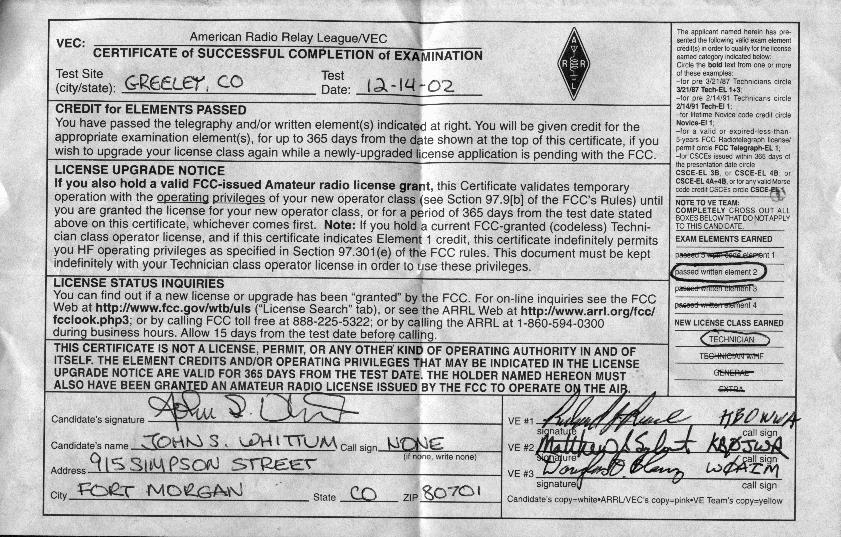 VEC: American Radio Relay League/VEC
CERTIFICATE of SUCCESSFUL COMPLETION of EXAMINATION
Test Site (city/state): GREELEY, CO Test Date: 12-14-02
A
R R
L
CREDIT for ELEMENTS PASSED
You have passed the telegraphy and/or written element(s) indicated at right. You will be given credit for the
appropriate examination element(s), for up to 365 days from the date shown at the top of this certificate, if you
wish to upgrade your license class again while a newly-upgraded license application is pending with the FCC.
LICENSE UPGRADE NOTICE
If you also hold a valid FCC-issued Amateur radio license grant, this Certificate validates temporary
operation with the operating privileges of your new operator class (see Section 97.9[b] of the FCC's Rules) until
you are granted the license for your new operator class, or for a period of 365 days from the test date stated
above on this certificate, whichever comes first. Note: If you hold a current FCC-granted (codeless) Techni-
cian class operator license, and if this certificate indicates Element 1 credit, this certificate indefinitely permits
you HF operating privileges as specified in Section 97.301(e) of the FCC rules. This document must be kept
indefinitely with your Technician class operator license in order to use these privileges.
LICENSE STATUS INQUIRIES
You can find out if a new license or upgrade has been "granted" by the FCC. For on-line inquiries see the FCC
Web at http://www.fcc.gov/wtb/uls ("License Search" tab), or see the ARRL Web at http://www.arrl.org/fcc/
fcclook.php3; or by calling FCC toll free at 888-225-5322; or by calling the ARRL at 1-860-594-0300
during business hours. Allow 15 days from the test date before calling.
THIS CERTIFICATE IS NOT A LICENSE, PERMIT, OR ANY OTHER KIND OF OPERATING AUTHORITY IN AND OF
ITSELF. THE ELEMENT CREDITS AND/OR OPERATING PRIVILEGES THAT MAY BE INDICATED IN THE LICENSE
UPGRADE NOTICE ARE VALID FOR 365 DAYS FROM THE TEST DATE. THE HOLDER NAMED HEREON MUST
ALSO HAVE BEEN GRANTED AN AMATEUR RADIO LICENSE ISSUED BY THE FCC TO OPERATE ON THE AIR.
The applicant named herein has pre-
sented the following valid exam element
credit(s) in order to qualify for the license
earned category indicated below:
Circle the bold text from one or more
of these examples:
–for pre 3/21/87 Technicians circle
3/21/87 Tech-EL 1+3;
–for pre 2/14/91 Technicians circle
2/14/91 Tech-El 1;
–for lifetime Novice code credit circle
Novice-El 1;
–for a valid or expired-less-than-
5-years FCC Radiotelegraph license/
permit circle FCC Telegraph-EL 1;
–for CSCEs issued within 365 days of
the presentation date circle
CSCE-EL 3B, or CSCE-EL 4B, or
CSCE-EL 4A+4B, or for any valid Morse
code credit CSCEs circle CSCE-EL 1
NOTE TO VE TEAM:
COMPLETELY CROSS OUT ALL
BOXES BELOW THAT DO NOT APPLY
TO THIS CERTIFICATE.
EXAM ELEMENTS EARNED
passed 5 wpm code element 1
passed written element 2
passed written element 3
passed written element 4
NEW LICENSE CLASS EARNED
TECHNICIAN
TECHNICIAN W/HF
GENERAL
EXTRA
Candidate's signature
Candidate's name JOHN S. WHITTUM Call sign NONE
(if none, write none)
Address 915 SIMPSON STREET
City FORT MORGAN State CO ZIP 80701
VE #1
signature call sign
VE #2 KBØJWA
signature call sign
VE #3 WØAIM
signature call sign
Candidate's copy=white•ARRL/VEC's copy=pink•VE Team's copy=yellow